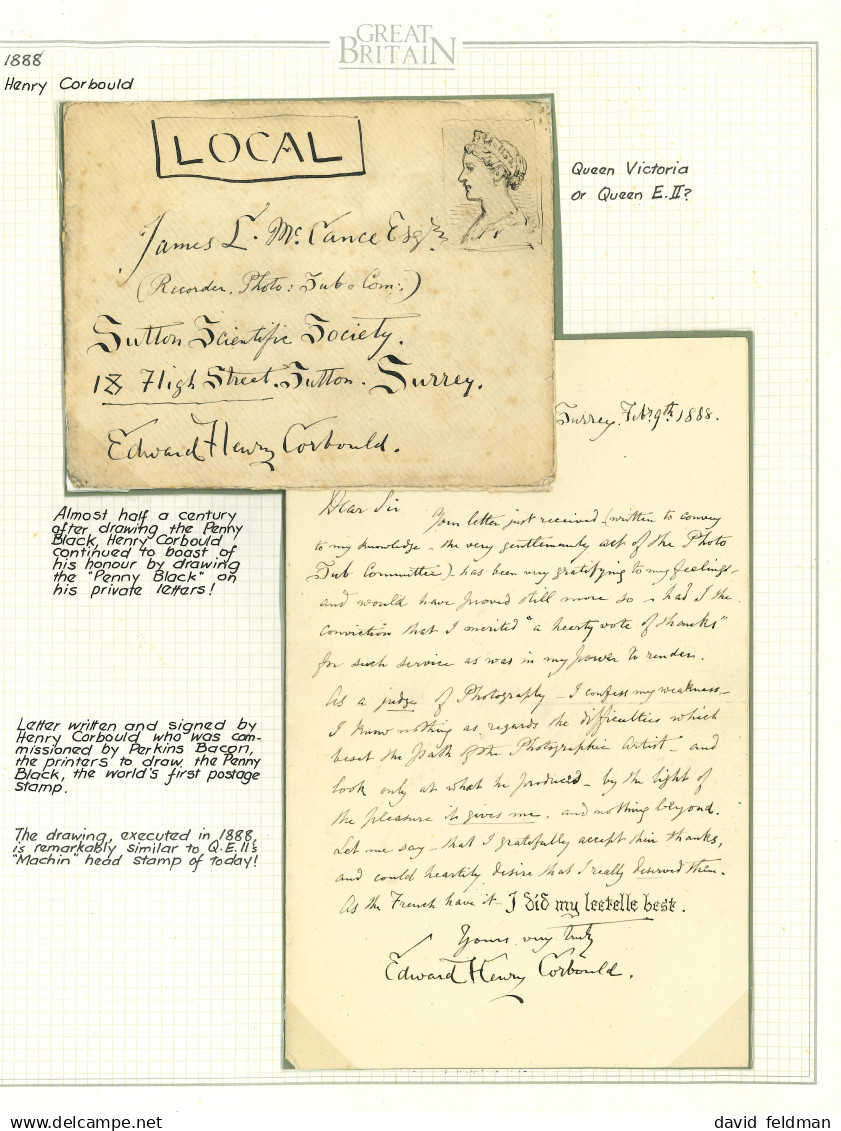 GREAT
BRITAIN
1888
Henry Corbould
LOCAL
James L. McCance Esqre
(Recorder. Photo: Sub-Com:)
Sutton Scientific Society.
18 High Street. Sutton. Surrey.
Edward Henry Corbould.
Queen Victoria
or Queen E.II?
Almost half a century
after drawing the Penny
Black, Henry Corbould
continued to boast of
his honour by drawing
the "Penny Black" on
his private letters!
Letter written and signed by
Henry Corbould who was com-
missioned by Perkins Bacon,
the printers to draw the Penny
Black, the world's first postage
stamp.
The drawing, executed in 1888,
is remarkably similar to Q.E.II's
"Machin" head stamp of today!
Surrey. Feb. 9th 1888.
Dear Sir
Your letter just received (written to convey
to my knowledge - the very gentlemanly act of the Photo
Sub Committee) - has been very gratifying to my feelings -
and would have proved still more so - had I the
conviction that I merited "a hearty vote of thanks"
for such service as was in my power to render.
As a judge of Photography - I confess my weakness -
I know nothing as regards the difficulties which
beset the path of the Photographic Artist - and
look only at what he produces - by the light of
the pleasure it gives me, and nothing beyond.
Let me say - that I gratefully accept their thanks,
and could heartily desire that I really deserved them.
As the French have it - I did my leetelle best.
Yours very truly
Edward Henry Corbould.
david feldman